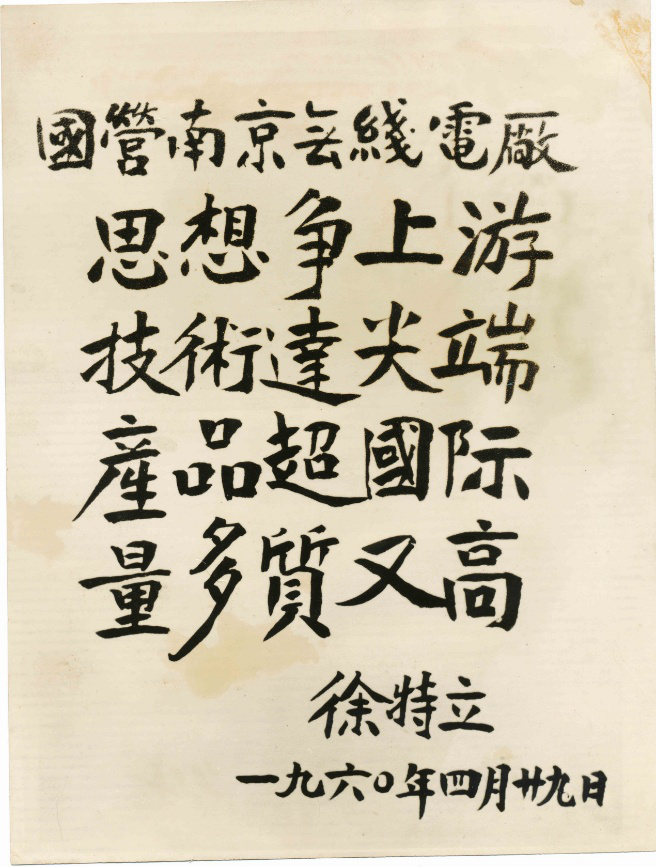 國營南京無綫電廠
思想争上游
技術達尖端
產品超國际
量多質又高
徐特立
一九六〇年四月廿九日